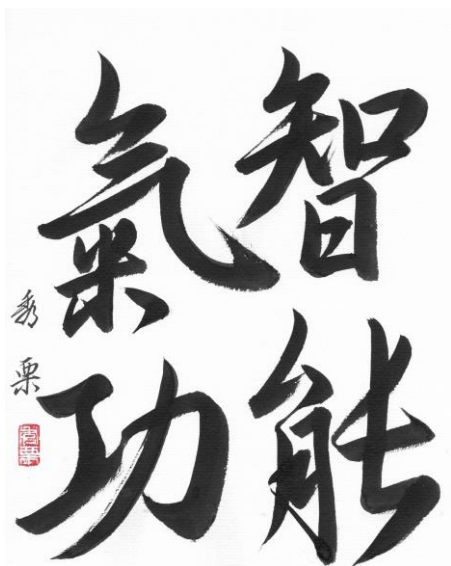 智能
氣功
秀栗